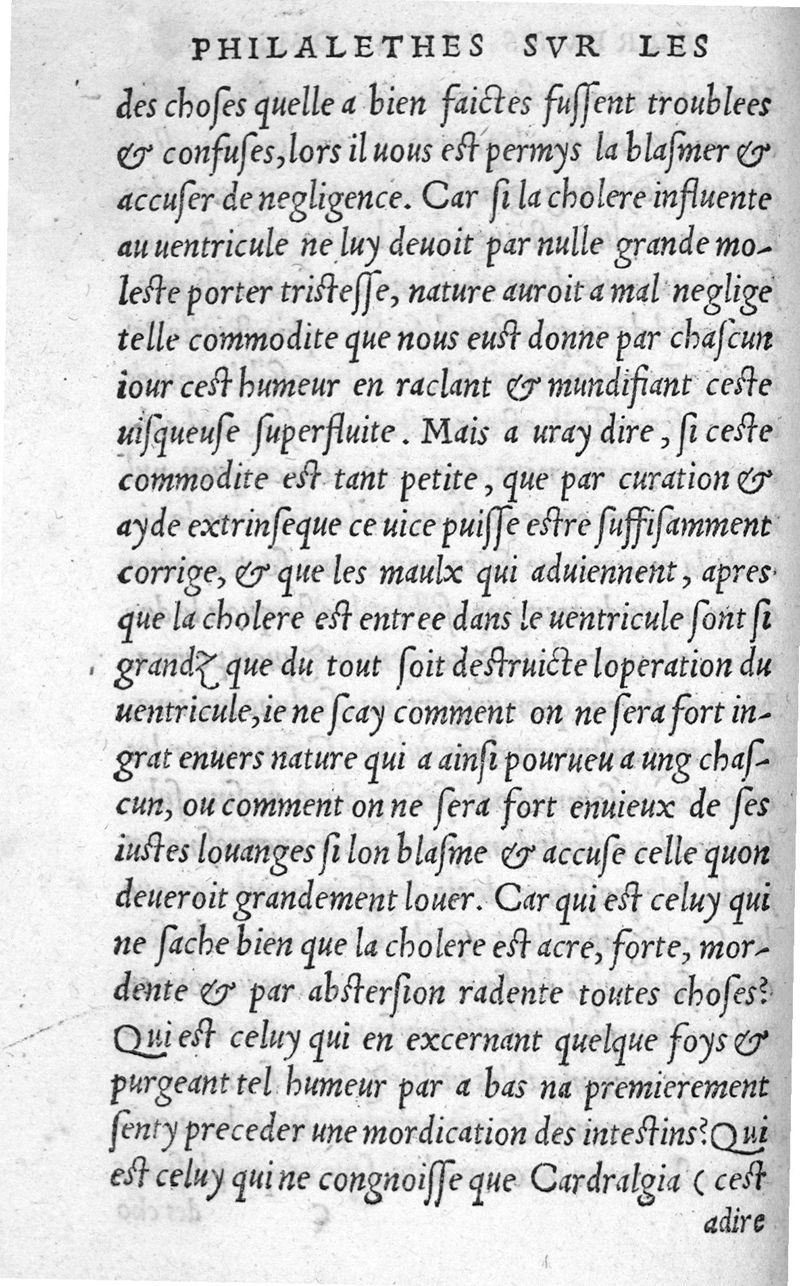 PHILALETHES SVR LES
des choſes quelle a bien faictes fuſſent troublees
& confuſes, lors il uous eſt permys la blaſmer &
accuſer de negligence. Car ſi la cholere influente
au uentricule ne luy deuoit par nulle grande mo-
leſte porter triſteſſe, nature auroit a mal neglige
telle commodite que nous euſt donne par chaſcun
iour ceſt humeur en raclant & mundifiant ceſte
uiſqueuſe ſuperfluite. Mais a uray dire, ſi ceſte
commodite eſt tant petite, que par curation &
ayde extrinſeque ce uice puiſſe eſtre ſuffiſamment
corrige, & que les maulx qui aduiennent, apres
que la cholere eſt entree dans le uentricule ſont ſi
grandz que du tout ſoit deſtruicte loperation du
uentricule, ie ne ſcay comment on ne ſera fort in-
grat enuers nature qui a ainſi pourueu a ung chaſ-
cun, ou comment on ne ſera fort enuieux de ſes
iuſtes louanges ſi lon blaſme & accuſe celle quon
deueroit grandement louer. Car qui eſt celuy qui
ne ſache bien que la cholere eſt acre, forte, mor-
dente & par abſterſion radente toutes choſes?
Qui eſt celuy qui en excernant quelque foys &
purgeant tel humeur par a bas na premierement
ſenty preceder une mordication des inteſtins? Qui
eſt celuy qui ne congnoiſſe que Cardralgia ( ceſt
adire